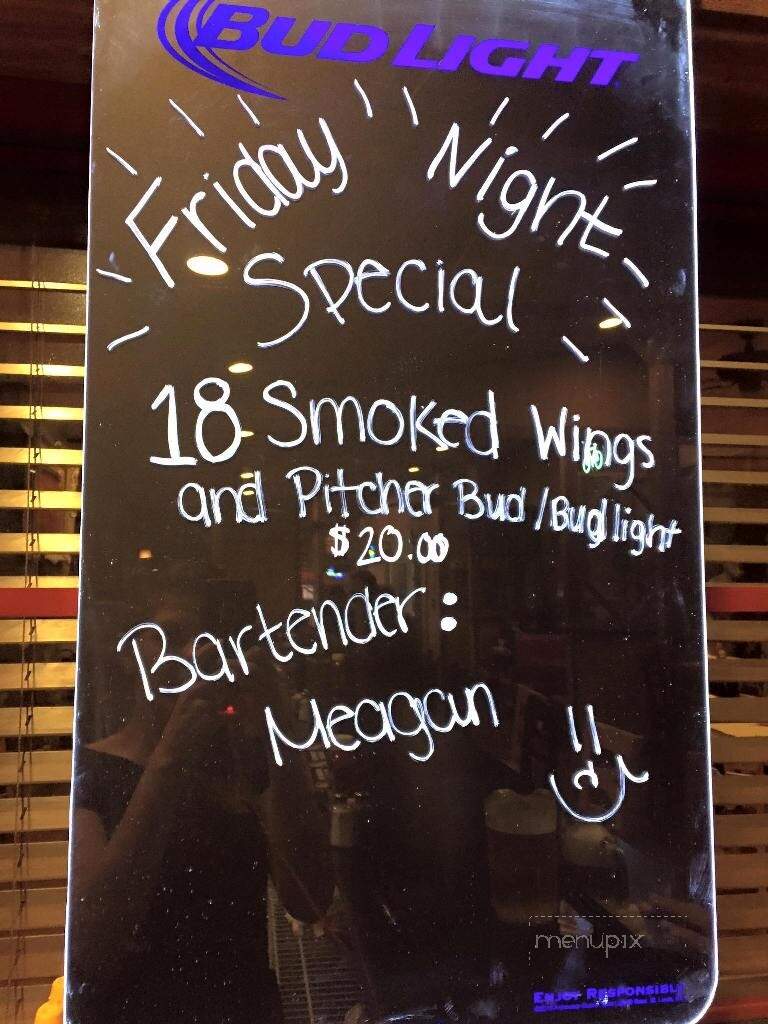 BUD LIGHT
Friday Night
Special
18 Smoked Wings
and Pitcher Bud/Bud light
$20.00
Bartender:
Meagan
menupix
ENJOY RESPONSIBLY